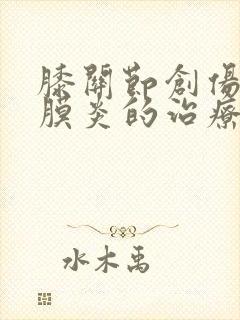 膝關節創傷
膜炎的治療
水木禹